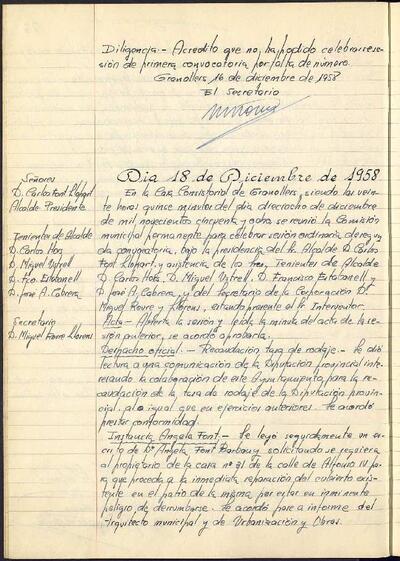 Diligencia.- Acredito que no ha podido celebrarse se-
sión de primera convocatoria por falta de número.
Granollers, 16 de diciembre de 1958
El Secretario
Día 18 de Diciembre de 1958
Señores
D. Carlos Font Llopart
Alcalde Presidente
Tenientes de Alcalde
D. Carlos
D. Miguel
D. Fco. Estabanell
D. José A. Cabrera
Secretario
D. Miguel Llorens
En la Casa Consistorial de Granollers, siendo las vein-
te horas quince minutos del día dieciocho de diciembre
de mil novecientos cincuenta y ocho, se reunió la Comisión
municipal permanente para celebrar sesión ordinaria de segun-
da convocatoria, bajo la presidencia del Sr. Alcalde D. Carlos
Font Llopart, y asistencia de los Sres. Tenientes de Alcalde
D. Carlos D. Miguel D. Francisco Estabanell y
D. José A. Cabrera, y del Secretario de la Corporación D.
Miguel y Llorens, estando presente el Sr. Interventor.
Acta.- Abierta la sesión y leída la minuta del acta de la se-
sión anterior, se acordó aprobarla.
Despacho oficial.- Recaudación tasa de rodaje.- Se dió
lectura a una comunicación de la Diputación provincial inte-
resando la colaboración de este Ayuntamiento para la re-
caudación de la tasa de rodaje de la Diputación provin-
cial, al igual que en ejercicios anteriores. Se acordó
prestar conformidad.
Instancia Angela Font.- Se leyó seguidamente un es-
crito de Dª Angela Font solicitando se requiera
al propietario de la casa nº 31 de la calle de Alfonso IV para
que proceda a la inmediata reparación del cubierto exis-
tente en el patio de la misma, por estar en inminente
peligro de derrumbarse. Se acordó pase a informe del
Arquitecto municipal y de Urbanización y Obras.